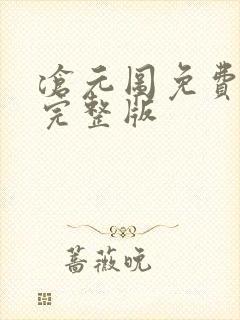 滄元图免費
完整版
蔷薇晚